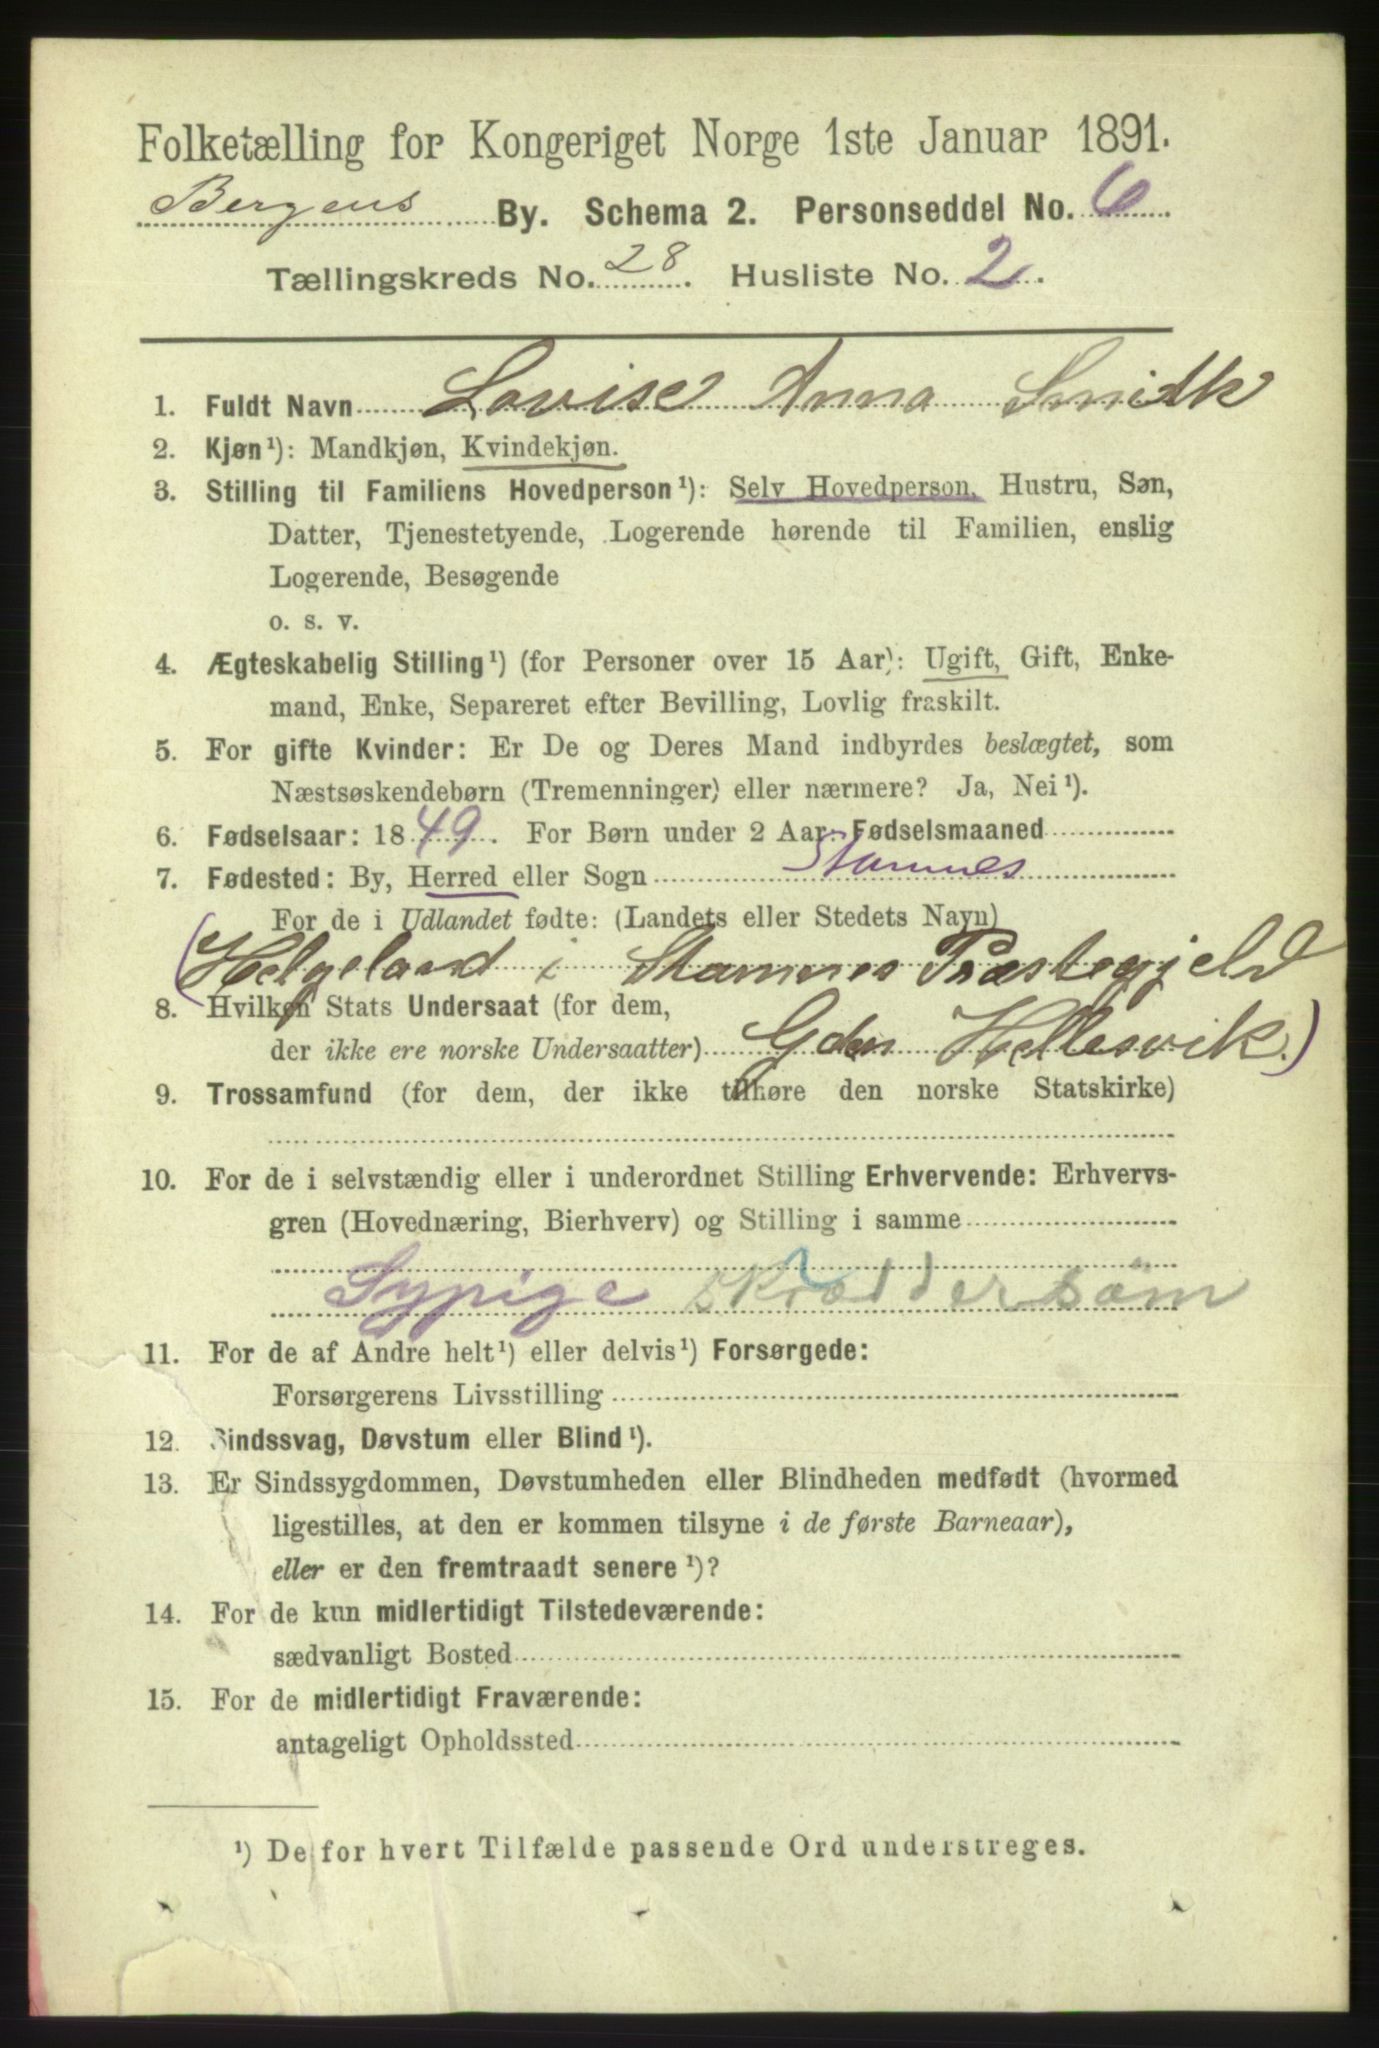 Folketælling for Kongeriget Norge 1ste Januar 1891.
Bergens By. Schema 2. Personseddel No. 6
Tællingskreds No. 28. Husliste No. 2.
1. Fuldt Navn Lovise Anna Smidk
2. Kjøn¹): Mandkjøn, Kvindekjøn.
3. Stilling til Familiens Hovedperson¹): Selv Hovedperson, Hustru, Søn,
Datter, Tjenestetyende, Logerende hørende til Familien, enslig
Logerende, Besøgende
o. s. v.
4. Ægteskabelig Stilling¹) (for Personer over 15 Aar): Ugift, Gift, Enke-
mand, Enke, Separeret efter Bevilling, Lovlig fraskilt.
5. For gifte Kvinder: Er De og Deres Mand indbyrdes beslægtet, som
Næstsøskendebørn (Tremenninger) eller nærmere? Ja, Nei¹).
6. Fødselsaar: 1849. For Børn under 2 Aar: Fødselsmaaned
7. Fødested: By, Herred eller Sogn Stamnes
For de i Udlandet fødte: (Landets eller Stedets Navn)
(Helgeland i Stamnes Præstegjeld
8. Hvilken Stats Undersaat (for dem,
der ikke ere norske Undersaatter) Gden Hellesvik.)
9. Trossamfund (for dem, der ikke tilhøre den norske Statskirke)
10. For de i selvstændig eller i underordnet Stilling Erhvervende: Erhvervs-
gren (Hovednæring, Bierhverv) og Stilling i samme
Sypige skræddersöm
11. For de af Andre helt¹) eller delvis¹) Forsørgede:
Forsørgerens Livsstilling
12. Sindssvag, Døvstum eller Blind¹).
13. Er Sindssygdommen, Døvstumheden eller Blindheden medfødt (hvormed
ligestilles, at den er kommen tilsyne i de første Barneaar),
eller er den fremtraadt senere¹)?
14. For de kun midlertidigt Tilstedeværende:
sædvanligt Bosted
15. For de midlertidigt Fraværende:
antageligt Opholdssted
¹) De for hvert Tilfælde passende Ord understreges.